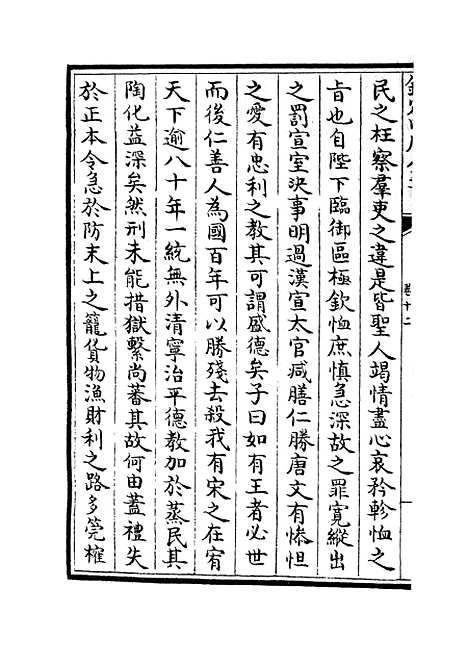 民之枉察羣吏之違是皆聖人竭情盡心哀矜軫恤之
旨也自陛下臨御區極欽恤庶慎急深故之罪寛縱出
之罰宣室決事明過漢宣太官減膳仁勝唐文有惨怛
之愛有忠利之教其可謂盛德矣子曰如有王者必世
而後仁善人為國百年可以勝殘去殺我有宋之在宥
天下逾八十年一統無外清寧治平德教加於蒸民其
陶化益深矣然刑未能措獄繫尚蕃其故何由蓋禮失
於正本令急於防末上之籠貨物漁財利之路多筦榷
卷十二